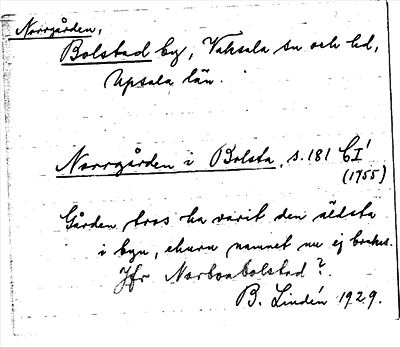 Norrgården,
Bolstad by, Vaksala sn och hd,
Upsala län.
Norrgården i Bolsta, s. 181 CI'
(1755)
Gården tros ha varit den äldsta
i byn, ehuru namnet nu ej brukas.
Jfr Norbonbolstad?
B. Lindén 1929.